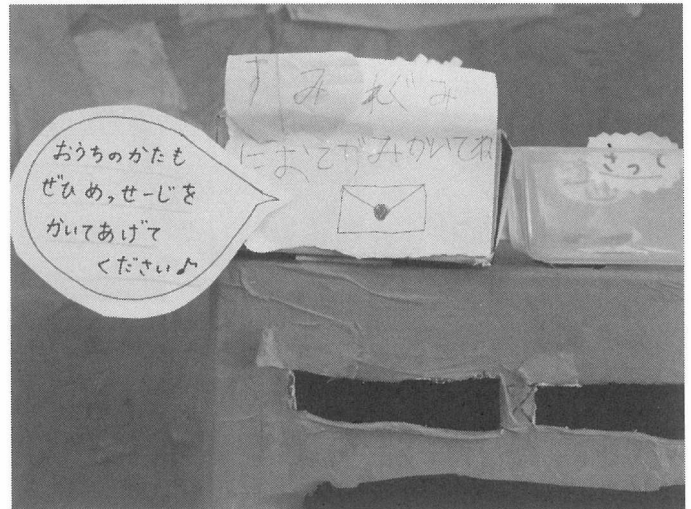 おうちのかたも
ぜひめっせーじを
かいてあげて
ください♪
すみれぐみ
におてがみかいてね